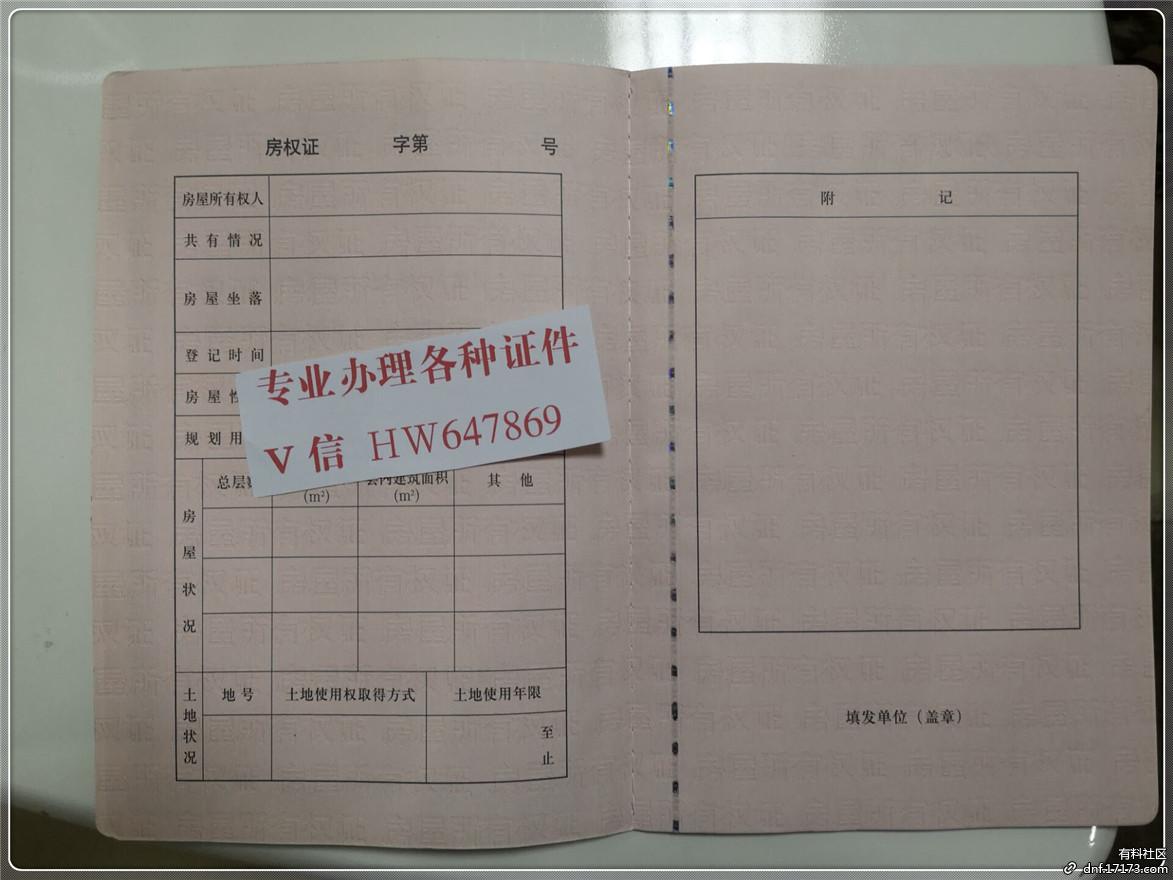 房权证 字第 号
房屋所有权人
共有情况
房屋坐落
登记时间
房屋
规划用
专业办理各种证件
V信 HW647869
总层
(m²)
套内建筑面积
(m²)
其 他
房屋状况
土地状况
地号
土地使用权取得方式
土地使用年限
至
止
附 记
填发单位（盖章）
有料社区
dnf.17173.com